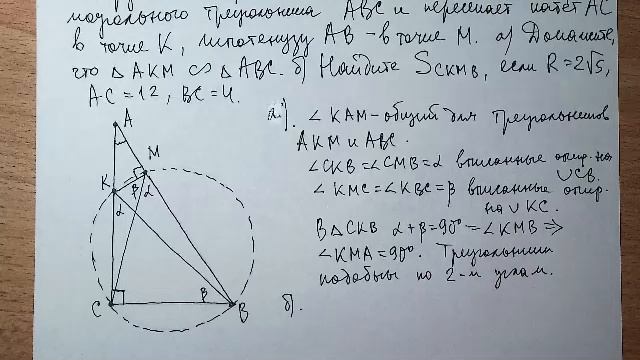 угольного треугольника ABC и пересекает катет AC
в точке K, гипотенузу AB - в точке M. а) Докажите,
что △ AKM ∾ △ ABC. б) Найдите S CKMB, если R=2√5,
AC=12, BC=4.
A
M
K
β α
α
C
β
B
а). ∠ KAM - общий для треугольников
AKM и ABC.
∠CKB = ∠CMB = α вписанные опир. на
∪CB.
∠ KMC = ∠KBC = β вписанные опир.
на ∪ KC.
В △ CKB α + β = 90° = ∠KMB ⇒
∠KMA = 90°. Треугольники
подобны по 2-м углам.
б).